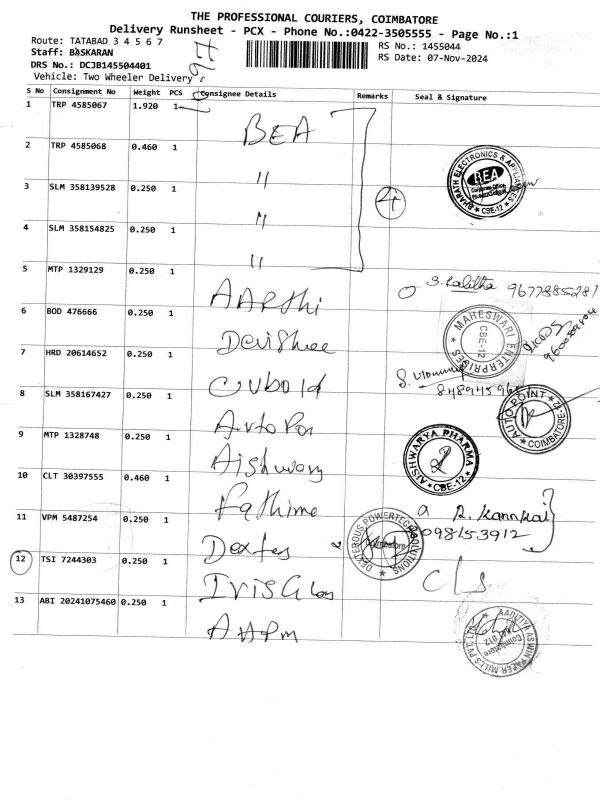 THE PROFESSIONAL COURIERS, COIMBATORE
Delivery Runsheet - PCX - Phone No.:0422-3505555 - Page No.:1
Route: TATABAD 3 4 5 6 7
RS No.: 1455044
Staff: BASKARAN
RS Date: 07-Nov-2024
DRS No.: DCJB145504401
Vehicle: Two Wheeler Delivery
S No Consignment No Weight PCS Consignee Details Remarks Seal & Signature
1 TRP 4585067 1.920 1 BEA
2 TRP 4585068 0.460 1 "
BHARATH ELECTRONICS & APPLIANCES
BEA
CBE-12
3 SLM 358139528 0.250 1 "
4
4 SLM 358154825 0.250 1 "
5 MTP 1329129 0.250 1 AARthi
S. Lalitha 9677885281
6 BOD 476666 0.250 1
MAHESWARI ENTERPRISES
CBE-12
7 HRD 20614652 0.250 1 Cubold
8 SLM 358167427 0.250 1
AUTO POINT
COIMBATORE-12
9 MTP 1328748 0.250 1 Aishwary
AISHWARYA PHARMA
CBE-12
10 CLT 30397555 0.460 1 Fathime
R. Kannkai
098153912
11 VPM 5487254 0.250 1
DEXTEROUS POWERTECH SOLUTIONS
Coimbatore
12 TSI 7244303 0.250 1
13 ABI 20241075460 0.250 1 AAPM
AADITIYA ASWIN PAPER MILLS PVT LTD
Coimbatore